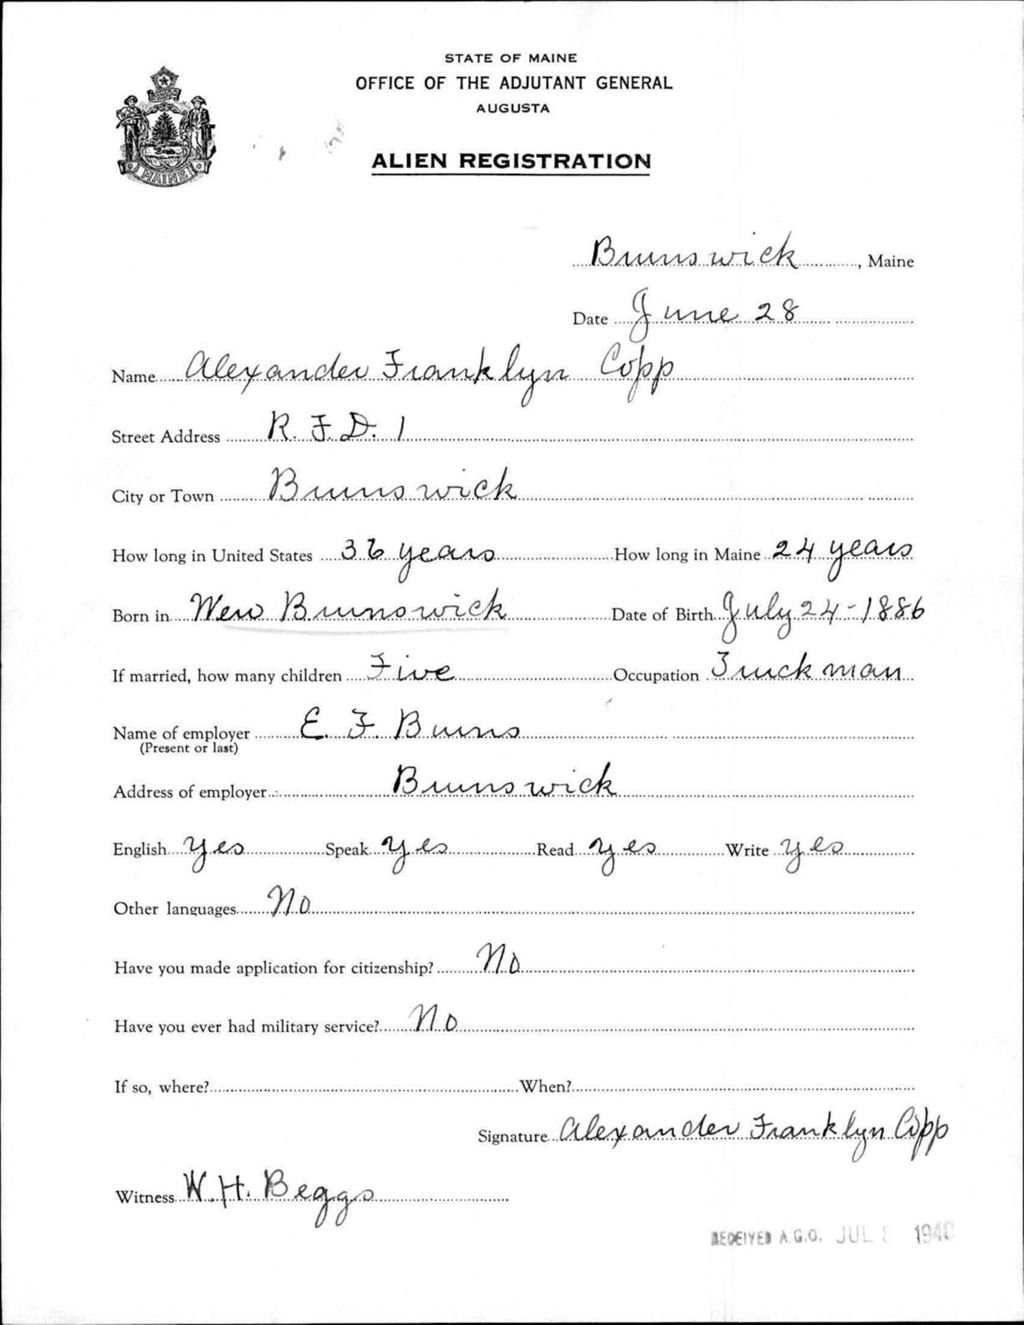 STATE OF MAINE
OFFICE OF THE ADJUTANT GENERAL
AUGUSTA
ALIEN REGISTRATION
MAINE
Brunswick, Maine
Date June 28
Name Alexander Franklyn Copp
Street Address R. F. D. 1
City or Town Brunswick
How long in United States 36 years How long in Maine 24 years
Born in New Brunswick Date of Birth July 24-1886
If married, how many children Five Occupation Truckman
Name of employer E. F. Burns
(Present or last)
Address of employer Brunswick
English Yes Speak Yes Read Yes Write Yes
Other languages No
Have you made application for citizenship? No
Have you ever had military service? No
If so, where? When?
Signature Alexander Franklyn Copp
Witness W. H. Beggs
RECEIVED A.G.O. JUL 1940